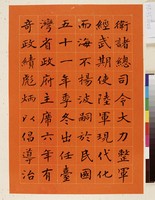 衛諸總司令大刀整軍
經武期使陸軍現代化
而海不揚波嗣於民國
五十一年尊冬出任臺
灣省政府主席六載有
奇政績彪炳以倡導治